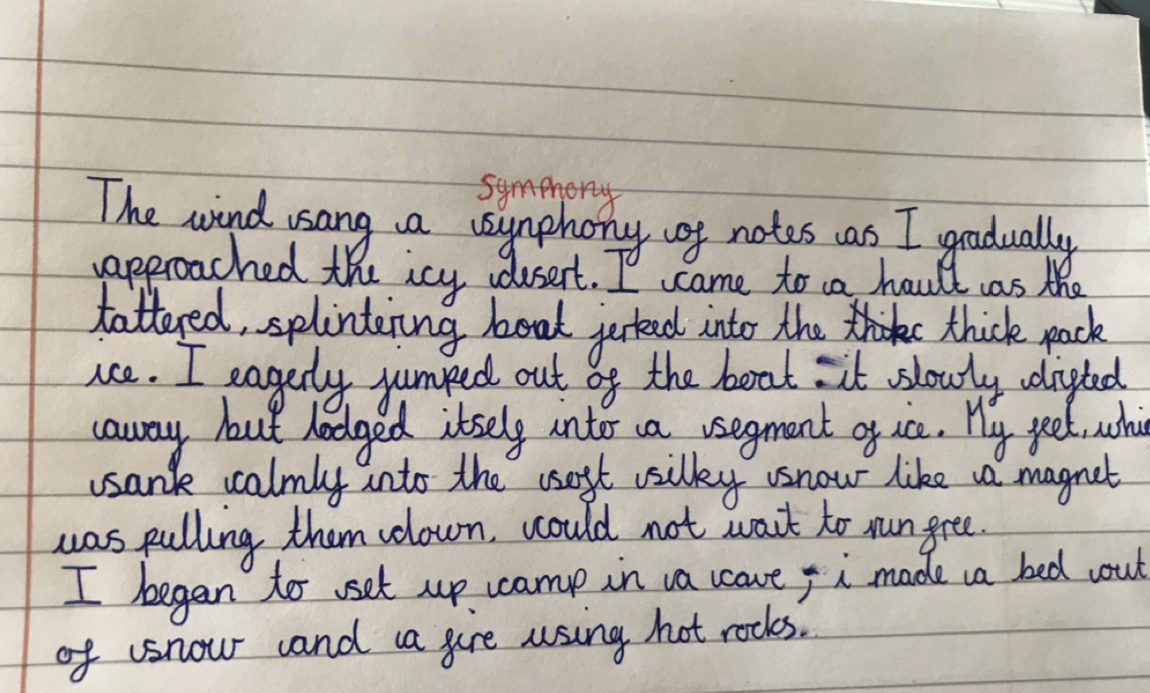 Symphony
The wind sang a synphony of notes as I gradually
approached the icy desert. I came to a hault as the
tattered, splintering boat jerked into the thikc thick pack
ice. I eagerly jumped out of the boat - it slowly drifted
away but lodged itself into a segment of ice. My feet, whi
sank calmly into the soft silky snow like a magnet
was pulling them down, could not wait to run free.
I began to set up camp in a cave ; i made a bed out
of snow and a fire using hot rocks.